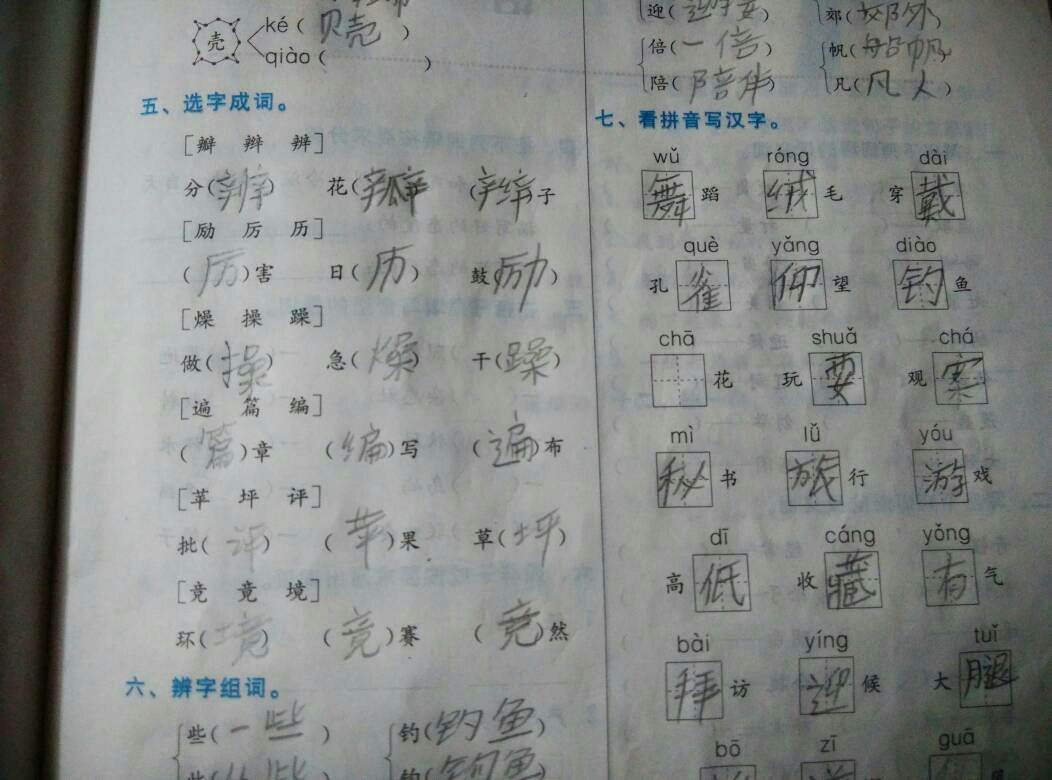 壳
ké（贝壳）
qiào（　）
五、选字成词。
［瓣　辩　辨］
分（辨）　花（瓣）　（辫）子
［励　厉　历］
（厉）害　日（历）　鼓（励）
［燥　操　躁］
做（操）　急（燥）　干（躁）
［遍　篇　编］
（篇）章　（编）写　（遍）布
［苹　坪　评］
批（评）　（苹）果　草（坪）
［竞　竟　境］
环（境）　（竟）赛　（竞）然
六、辨字组词。
些（一些）　钓（钓鱼）
迎（）　郊（郊外）
倍（一倍）　帆（船帆）
陪（陪伴）　凡（凡人）
七、看拼音写汉字。
wǔ　róng　dài
舞蹈　绒毛　穿戴
què　yǎng　diào
孔雀　仰望　钓鱼
chā　shuǎ　chá
花　玩耍　观察
mì　lǚ　yóu
秘书　旅行　游戏
dī　cáng　yǒng
高低　收藏　有气
bài　yíng　tuǐ
拜访　迎候　大腿
bō　zī　guā